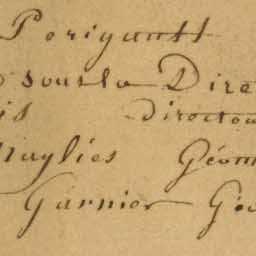 Perigault
sous la Dire
is directeu
Géom
Garnier Géo